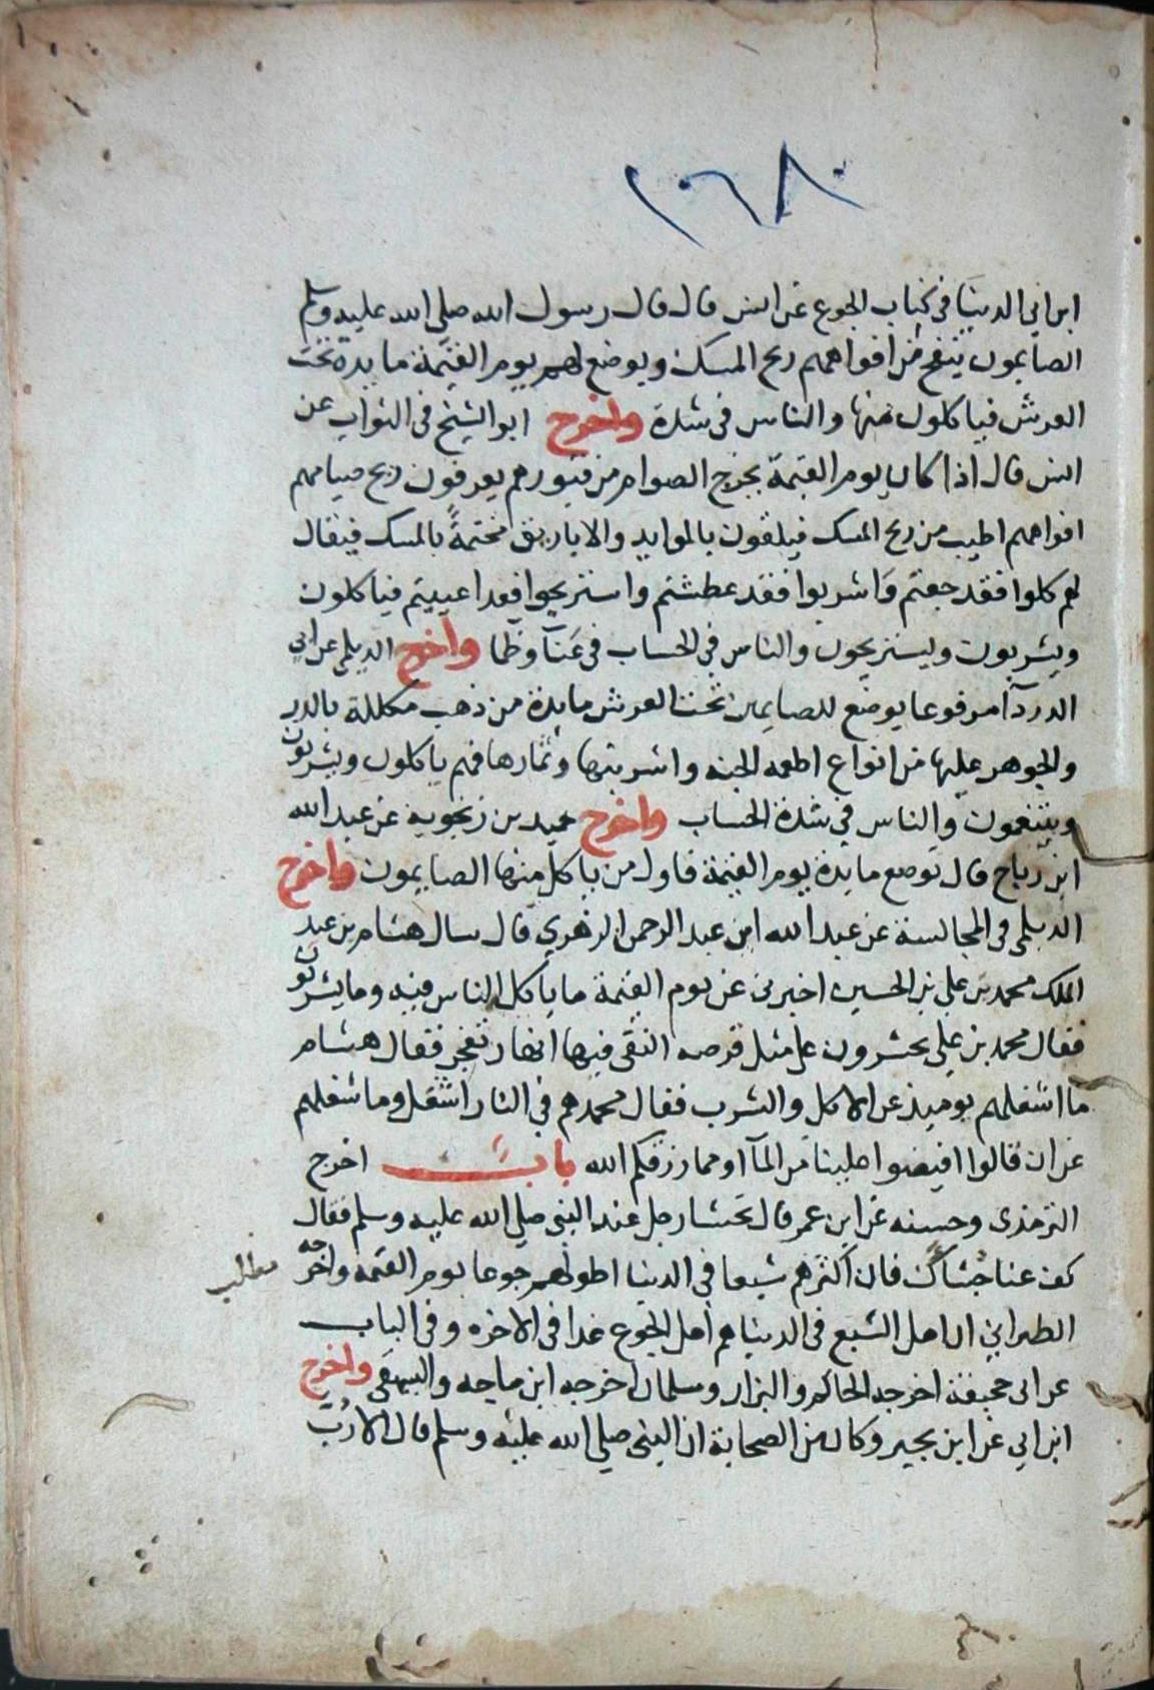 ٢٠٦٨٠
ابن ابي الدنيا في كتاب الجوع عن انس قال قال رسول الله صلى الله عليه وسلم
الصايمون ينفح من افواههم ريح المسك ويوضع لهم يوم القيمة مايدة تحت
العرش فياكلون منها والناس في شدة واخرج ابو الشيخ في الثواب عن
انس قال اذا كان يوم القيمة يخرج الصوام من قبورهم يعرفون بريح صيامهم
افواههم اطيب من ريح المسك فيلقون بالموايد والاباريق مختمة بالمسك فيقال
لهم كلوا فقد جعتم واشربوا فقد عطشتم واستريحوا فقد اعييتم فياكلون
ويشربون ويستريحون والناس في الحساب في عنآ وظما واخرج الديلمي عن ابي
الدردآ مرفوعا يوضع للصايمين تحت العرش مايدة من ذهب مكللة بالدر
والجوهر عليها من انواع اطعمه الجنه واشربتها وثمارها فهم ياكلون ويشربون
ويتنعمون والناس في شدة الحساب واخرج حميد بن زنجوية عن عبد الله
ابن رباح قال توضع مايدة يوم القيمة فاول من ياكل منها الصايمون واخرج
الديلمي في المجالسة عن عبد الله ابن عبد الرحمن الزهري قال سال هشام بن عبد
الملك محمد بن علي بن الحسين اخبرني عن يوم القيمة ما ياكل الناس فيه وما يشربون
فقال محمد بن علي يحشرون على مثل قرصه النقي فيها انهار تفجر فقال هشام
ما اشغلهم يوميذ عن الاكل والشرب فقال محمد هم في النار اشغل وما شغلهم
عن ان قالوا افيضوا علينا من المآ او مما رزقكم الله باب اخرج
الترمذي وحسنه عن ابن عمر قال تجشا رجل عند النبي صلي الله عليه وسلم فقال
كف عنا جشاك فان اكثرهم شبعا في الدنيا اطولهم جوعا يوم القيمه واخرجه
مطلب
الطبراني ان اهل الشبع في الدنيا هم اهل الجوع غدا في الاخره وفي الباب
عن ابي جحيفة اخرجه الحاكم والبزار وسلمان اخرجه ابن ماجه والبيهقي واخرج
ابن ابي عن ابن بجير وكان من الصحابة ان النبي صلي الله عليه وسلم قال الا رُبَّ